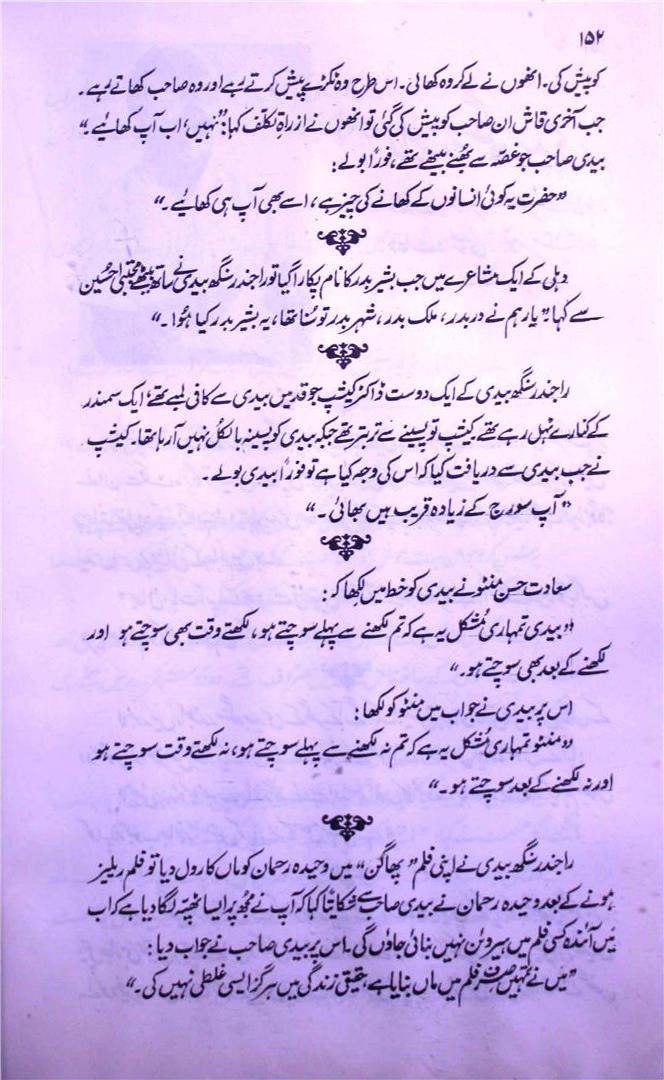 ۱۵۲
کو پیش کی۔ انھوں نے لے کر وہ کھائی۔ اس طرح وہ ٹکڑے پیش کرتے رہے اور وہ صاحب کھاتے رہے۔
جب آخری قاش ان صاحب کو پیش کی گئی تو انھوں نے از راہِ تکلف کہا: ”نہیں، اب آپ کھائیے۔“
بیدی صاحب جو غصّہ سے بھُنے بیٹھے تھے، فوراً بولے:
”حضرت یہ کوئی انسانوں کے کھانے کی چیز ہے، اسے بھی آپ ہی کھائیے۔“
دہلی کے ایک مشاعرے میں جب بشیر بدر کا نام پکارا گیا تو راجندر سنگھ بیدی نے ساتھ بیٹھے مجتبیٰ حسین
سے کہا: ”یار ہم نے دربدر، ملک بدر، شہر بدر تو سُنا تھا، یہ بشیر بدر کیا ہُوا۔“
راجندر سنگھ بیدی کے ایک دوست ڈاکٹر کیشپ جو قد میں بیدی سے کافی لمبے تھے، ایک سمندر
کے کنارے ٹہل رہے تھے۔ کیشپ تو پسینے سے تربتر تھے جبکہ بیدی کو پسینہ بالکل نہیں آرہا تھا۔ کیشپ
نے جب بیدی سے دریافت کیا کہ اس کی وجہ کیا ہے تو فوراً بیدی بولے۔
”آپ سُورج کے زیادہ قریب ہیں بھائی۔“
سعادت حسن منٹو نے بیدی کو خط میں لکھا کہ:
”بیدی تمہاری مُشکل یہ ہے کہ تم لکھنے سے پہلے سوچتے ہو، لکھتے وقت بھی سوچتے ہو اور
لکھنے کے بعد بھی سوچتے ہو۔“
اس پر بیدی نے جواب میں منٹو کو لکھا:
”منٹو تمہاری مُشکل یہ ہے کہ تم نہ لکھنے سے پہلے سوچتے ہو، نہ لکھتے وقت سوچتے ہو
اور نہ لکھنے کے بعد سوچتے ہو۔“
راجندر سنگھ بیدی نے اپنی فلم ”پھاگن“ میں وحیدہ رحمان کو ماں کا رول دیا تو فلم ریلیز
ہونے کے بعد وحیدہ رحمان نے بیدی صاحب سے شکایتاً کہا کہ آپ نے مجھ پر ایسا ٹھپّہ لگا دیا ہے کہ اب
میں آئندہ کسی فلم میں ہیروئن نہیں بنائی جاؤں گی۔ اس پر بیدی صاحب نے جواب دیا:
”میں نے تمہیں صرف فلم میں ماں بنایا ہے، حقیقی زندگی میں ہرگز ایسی غلطی نہیں کی۔“